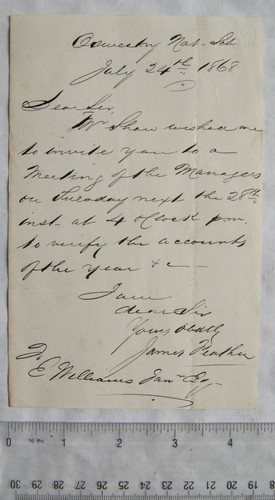 Oswestry Nat. Sch
July 24th 1868
Dear Sir,
Mr Shaw wished me
to invite you to a
Meeting of the Managers
on Tuesday next the 28th
inst. at 4 O'Clock p.m.
to verify the accounts
of the year &c —
I am
dear Sir
Yours obedtly
James Feather
E Williams Esq
0 1 2 3 4
30 29 28 27 26 25 24 23 22 21 20 19 18